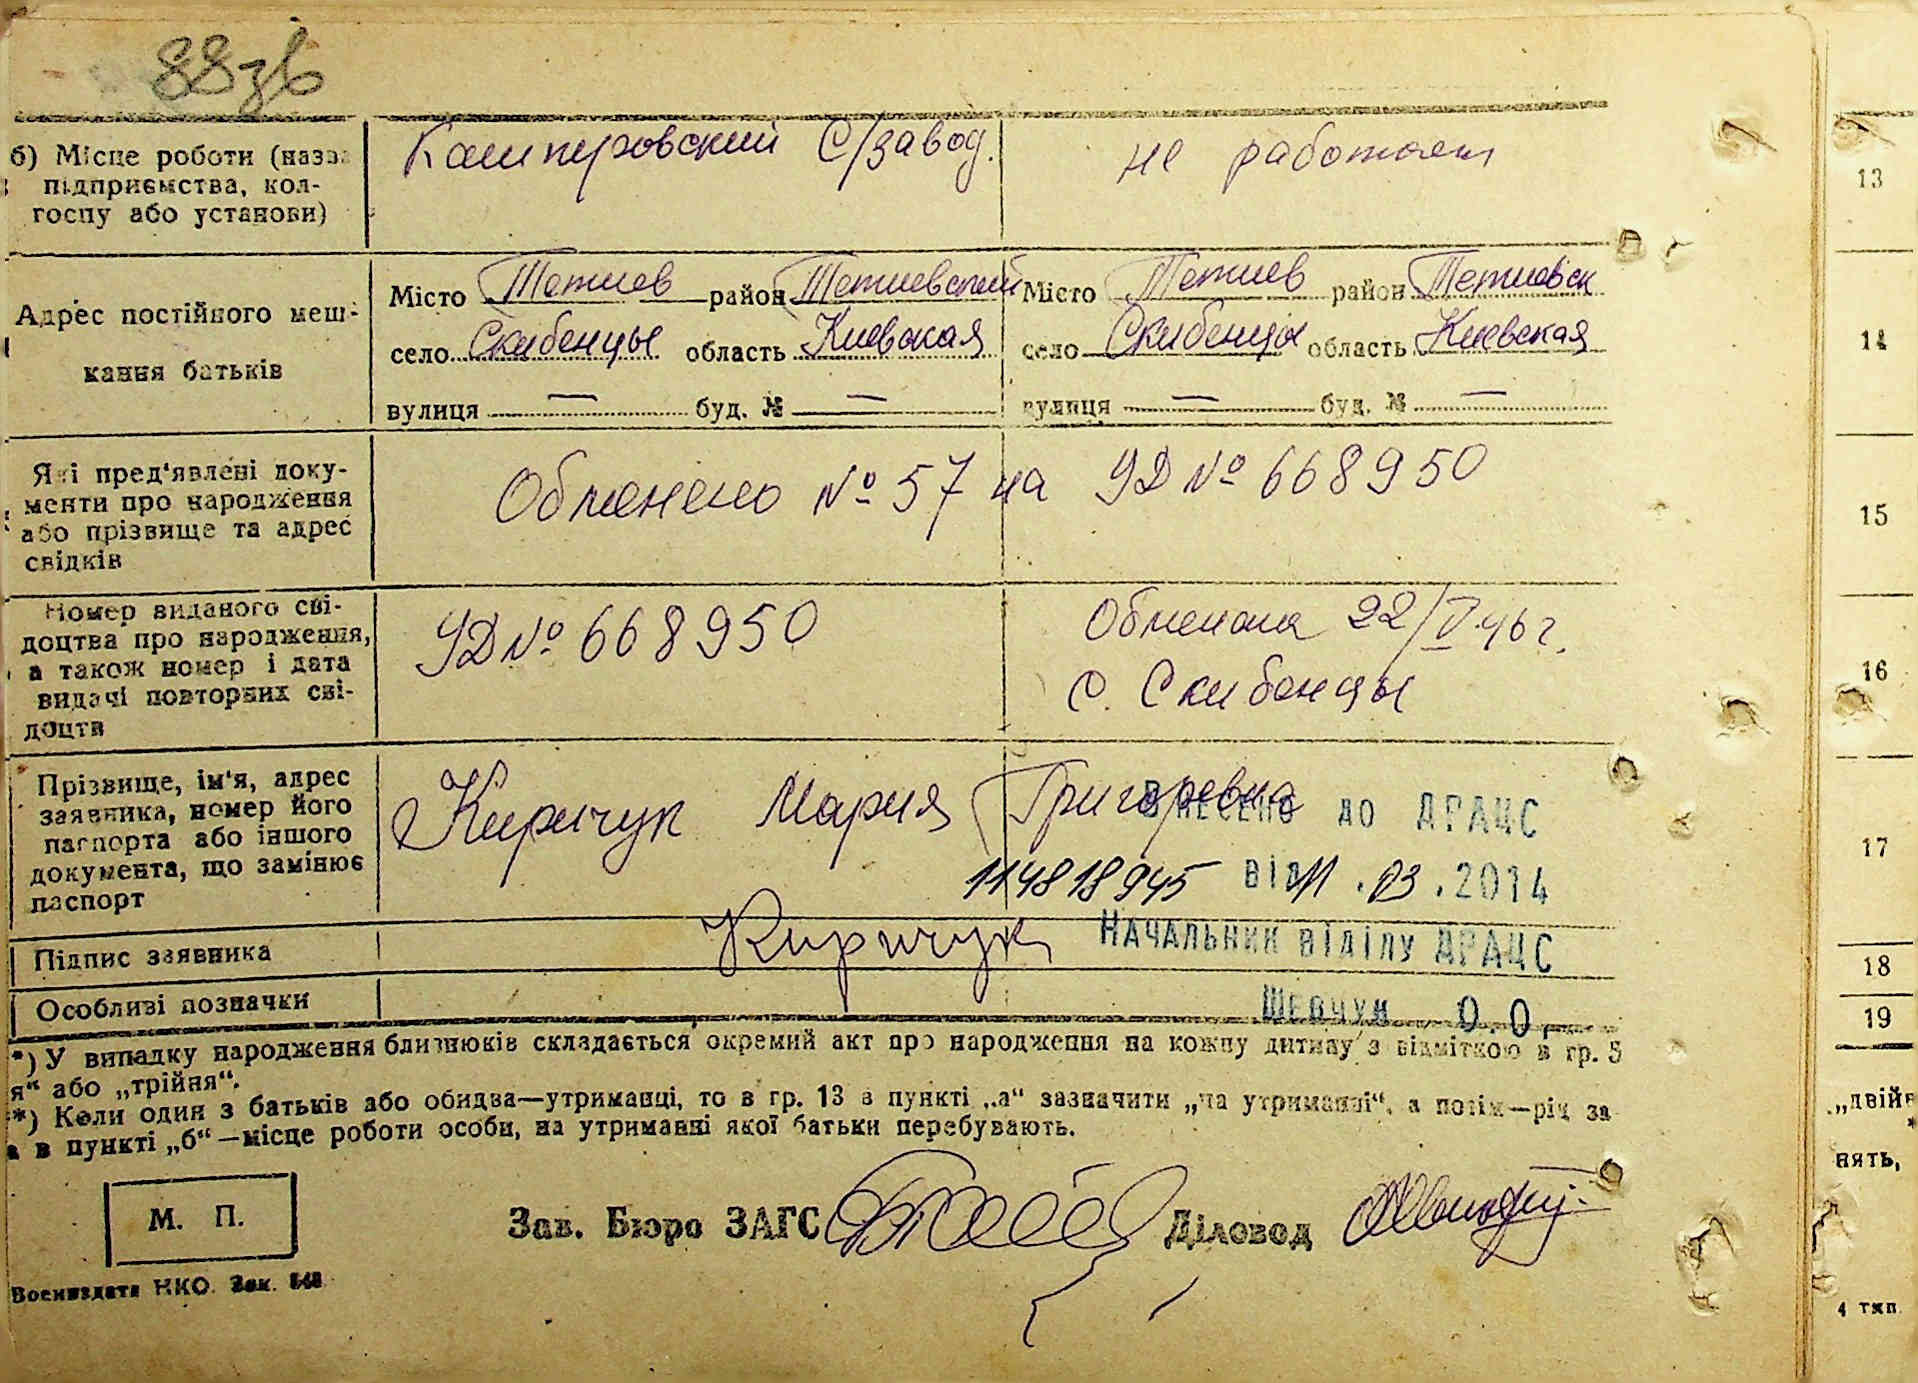 88зв
б) Місце роботи (назва Кашперовский С/завод. не работает
підприємства, кол-
госпу або установи)
Місто Тетиев район Тетиевский Місто Тетиев район Тетиевск
Адрес постійного меш- село Скибенцы область Киевская село Скибенцы область Киевская
кання батьків
вулиця — буд. № — вулиця — буд. № —
Які пред'явлені доку-
менти про народження Обменено №57 на УД № 668950
або прізвище та адрес
свідків
Номер виданого сві- Обменена 22/V.46 г.
доцтва про народження, УД № 668950
а також номер і дата с. Скибенцы
видачі повторних сві-
доцтв
Прізвище, ім'я, адрес Киричук Мария Григоревна
заявника, номер його ВНЕСЕНО ДО ДРАЦС
паспорта або іншого
документа, що замінює 114818945 від 11.03.2014
паспорт
Підпис заявника Киричук НАЧАЛЬНИК ВІДІЛУ ДРАЦС
Особливі позначки ШЕВЧУК О.О.
*) У випадку народження близнюків складається окремий акт про народження на кожну дитину з відміткою в гр. 5
я“ або „трійня“.
*) Коли один з батьків або обидва—утриманці, то в гр. 13 в пункті „а“ зазначити „на утриманні“, а потім—рід за
а в пункті „б“—місце роботи особи, на утриманні якої батьки перебувають.
М. П.
Зав. Бюро ЗАГС Діловод
Воениздата НКО. Зак. 648
13
14
15
16
17
18
19
„двійн
*
нять,
4 тип.